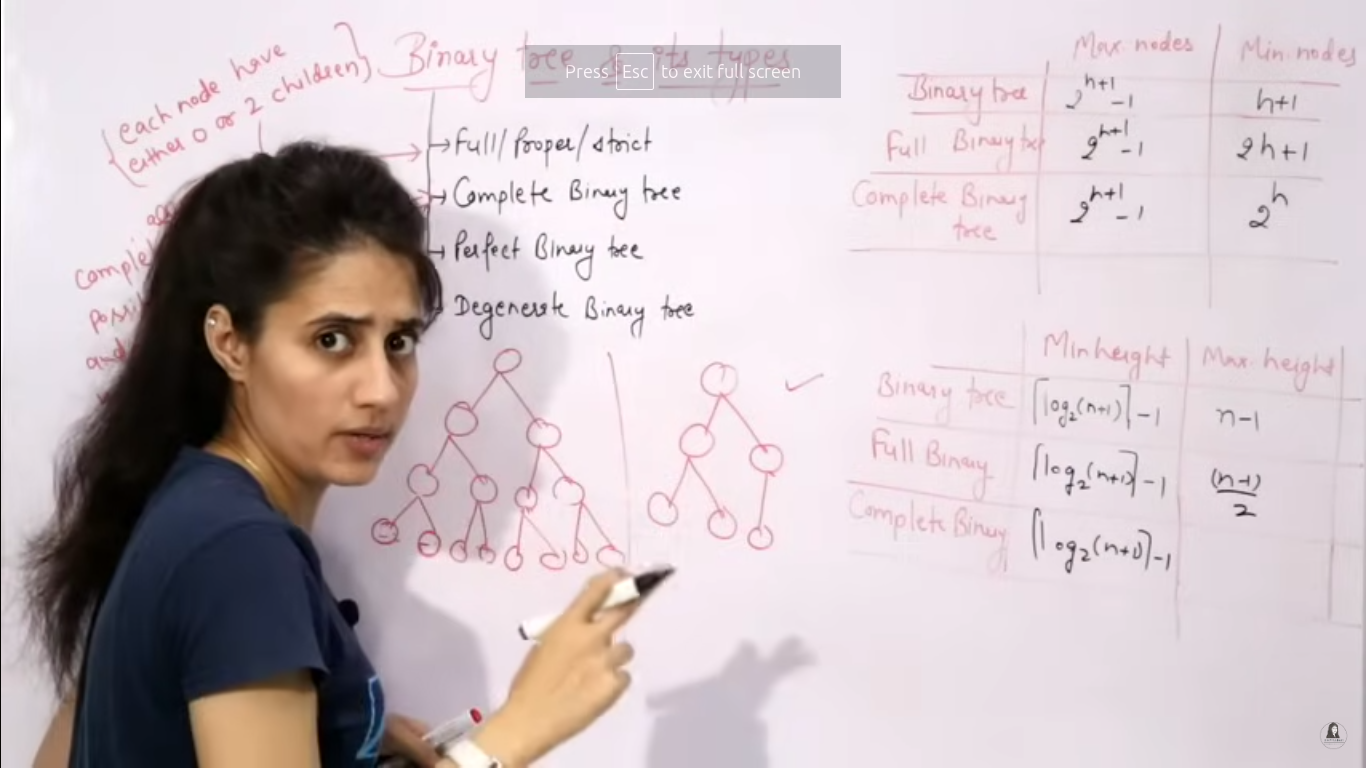 Binary tree & its types
Press Esc to exit full screen
{each node have
either 0 or 2 children}
Full/Proper/strict
Complete Binary tree
Perfect Binary tree
Degenerate Binary tree
Max. nodes Min. nodes
Binary tree 2^(h+1) -1 h+1
Full Binary tree 2^(h+1) -1 2h+1
Complete Binary tree 2^(h+1) -1 2^h
Min height Max. height
Binary tree ⌈log₂(n+1)⌉-1 n-1
Full Binary ⌈log₂(n+1)⌉-1 (n-1)/2
Complete Binary ⌈log₂(n+1)⌉-1